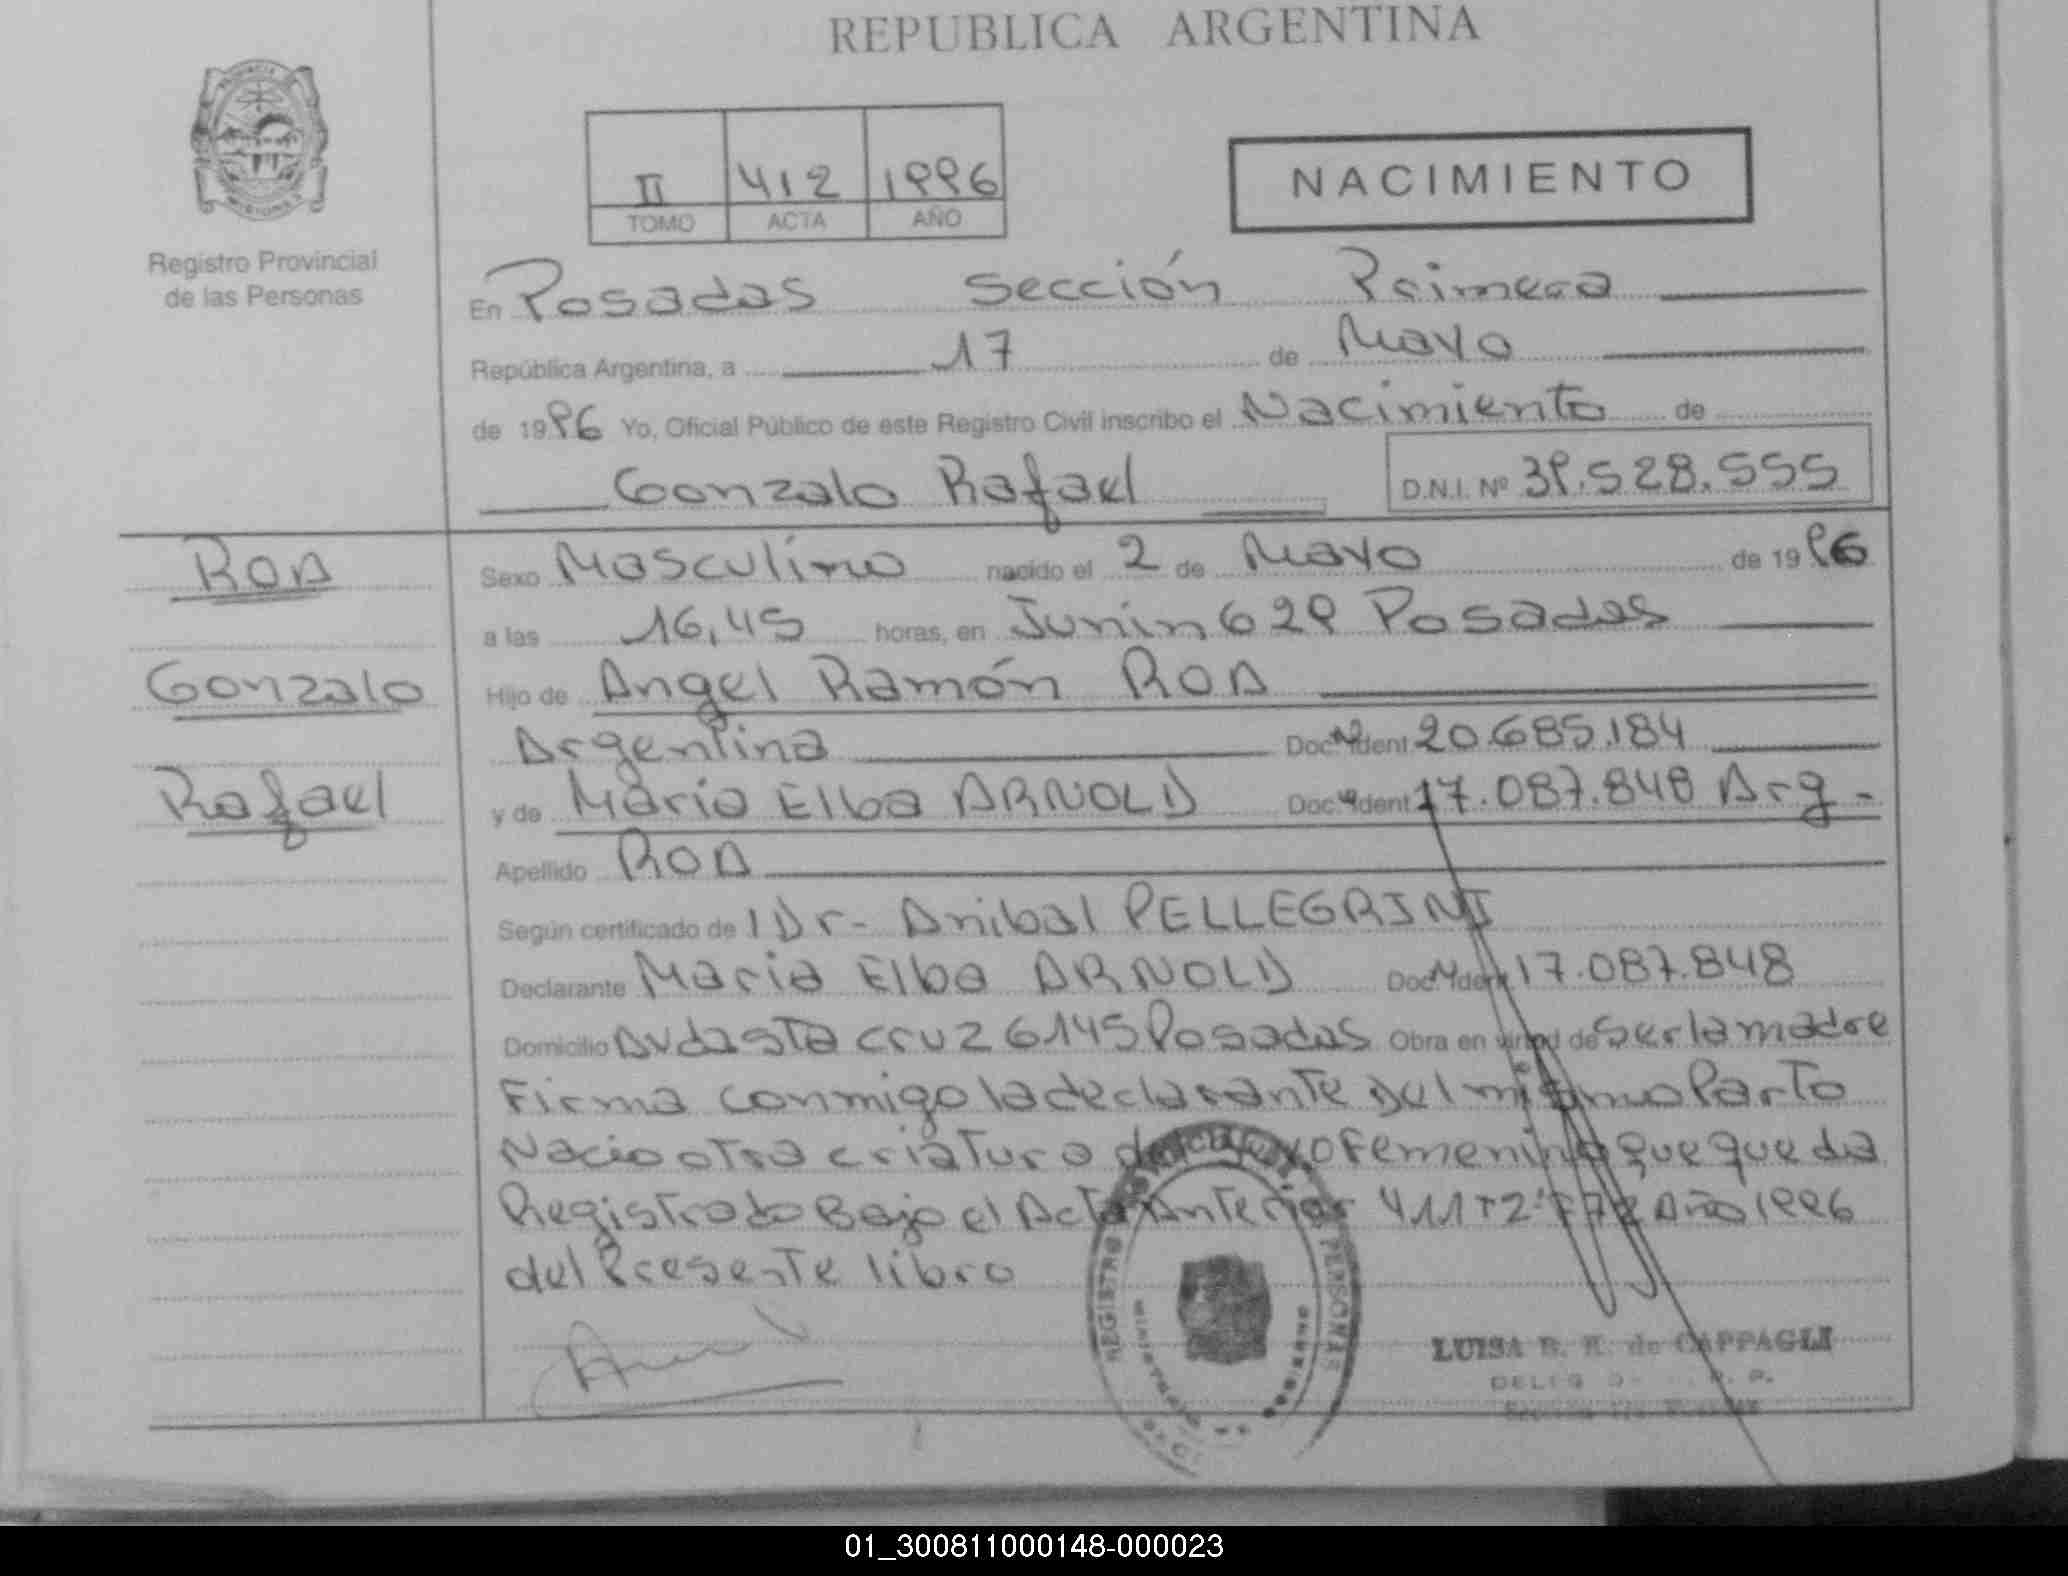 REPUBLICA ARGENTINA
PROVINCIA
MISIONES
Registro Provincial
de las Personas
II 412 1996
TOMO ACTA AÑO
NACIMIENTO
En Posadas Sección Primera
República Argentina, a 17 de Mayo
de 1996 Yo, Oficial Público de este Registro Civil inscribo el Nacimiento de
Gonzalo Rafael D.N.I. Nº 39.528.555
ROA
Gonzalo
Rafael
Sexo Masculino nacido el 2 de Mayo de 1996
a las 16,45 horas, en Junin 629 Posadas
Hijo de Angel Ramón ROA
Argentina Doc. Ident 20.685.184
y de Maria Elba ARNOLD Doc. Ident 17.087.848 Arg.
Apellido ROA
Según certificado de l Dr- Anibal PELLEGRINI
Declarante Maria Elba ARNOLD Doc. Ident 17.087.848
Domicilio Avda Sta Cruz 6145 Posadas Obra en virtud de ser la madre
Firma conmigo la declarante Del mismo Parto
Nacio otra criatura de sexo Femenino que queda
Registrado Bajo el Acta Anterior 411 Tº 2º Año 1996
del Presente libro
REGISTRO PERSONAS
LUISA B. R. de CAPPAGLI
01_300811000148-000023